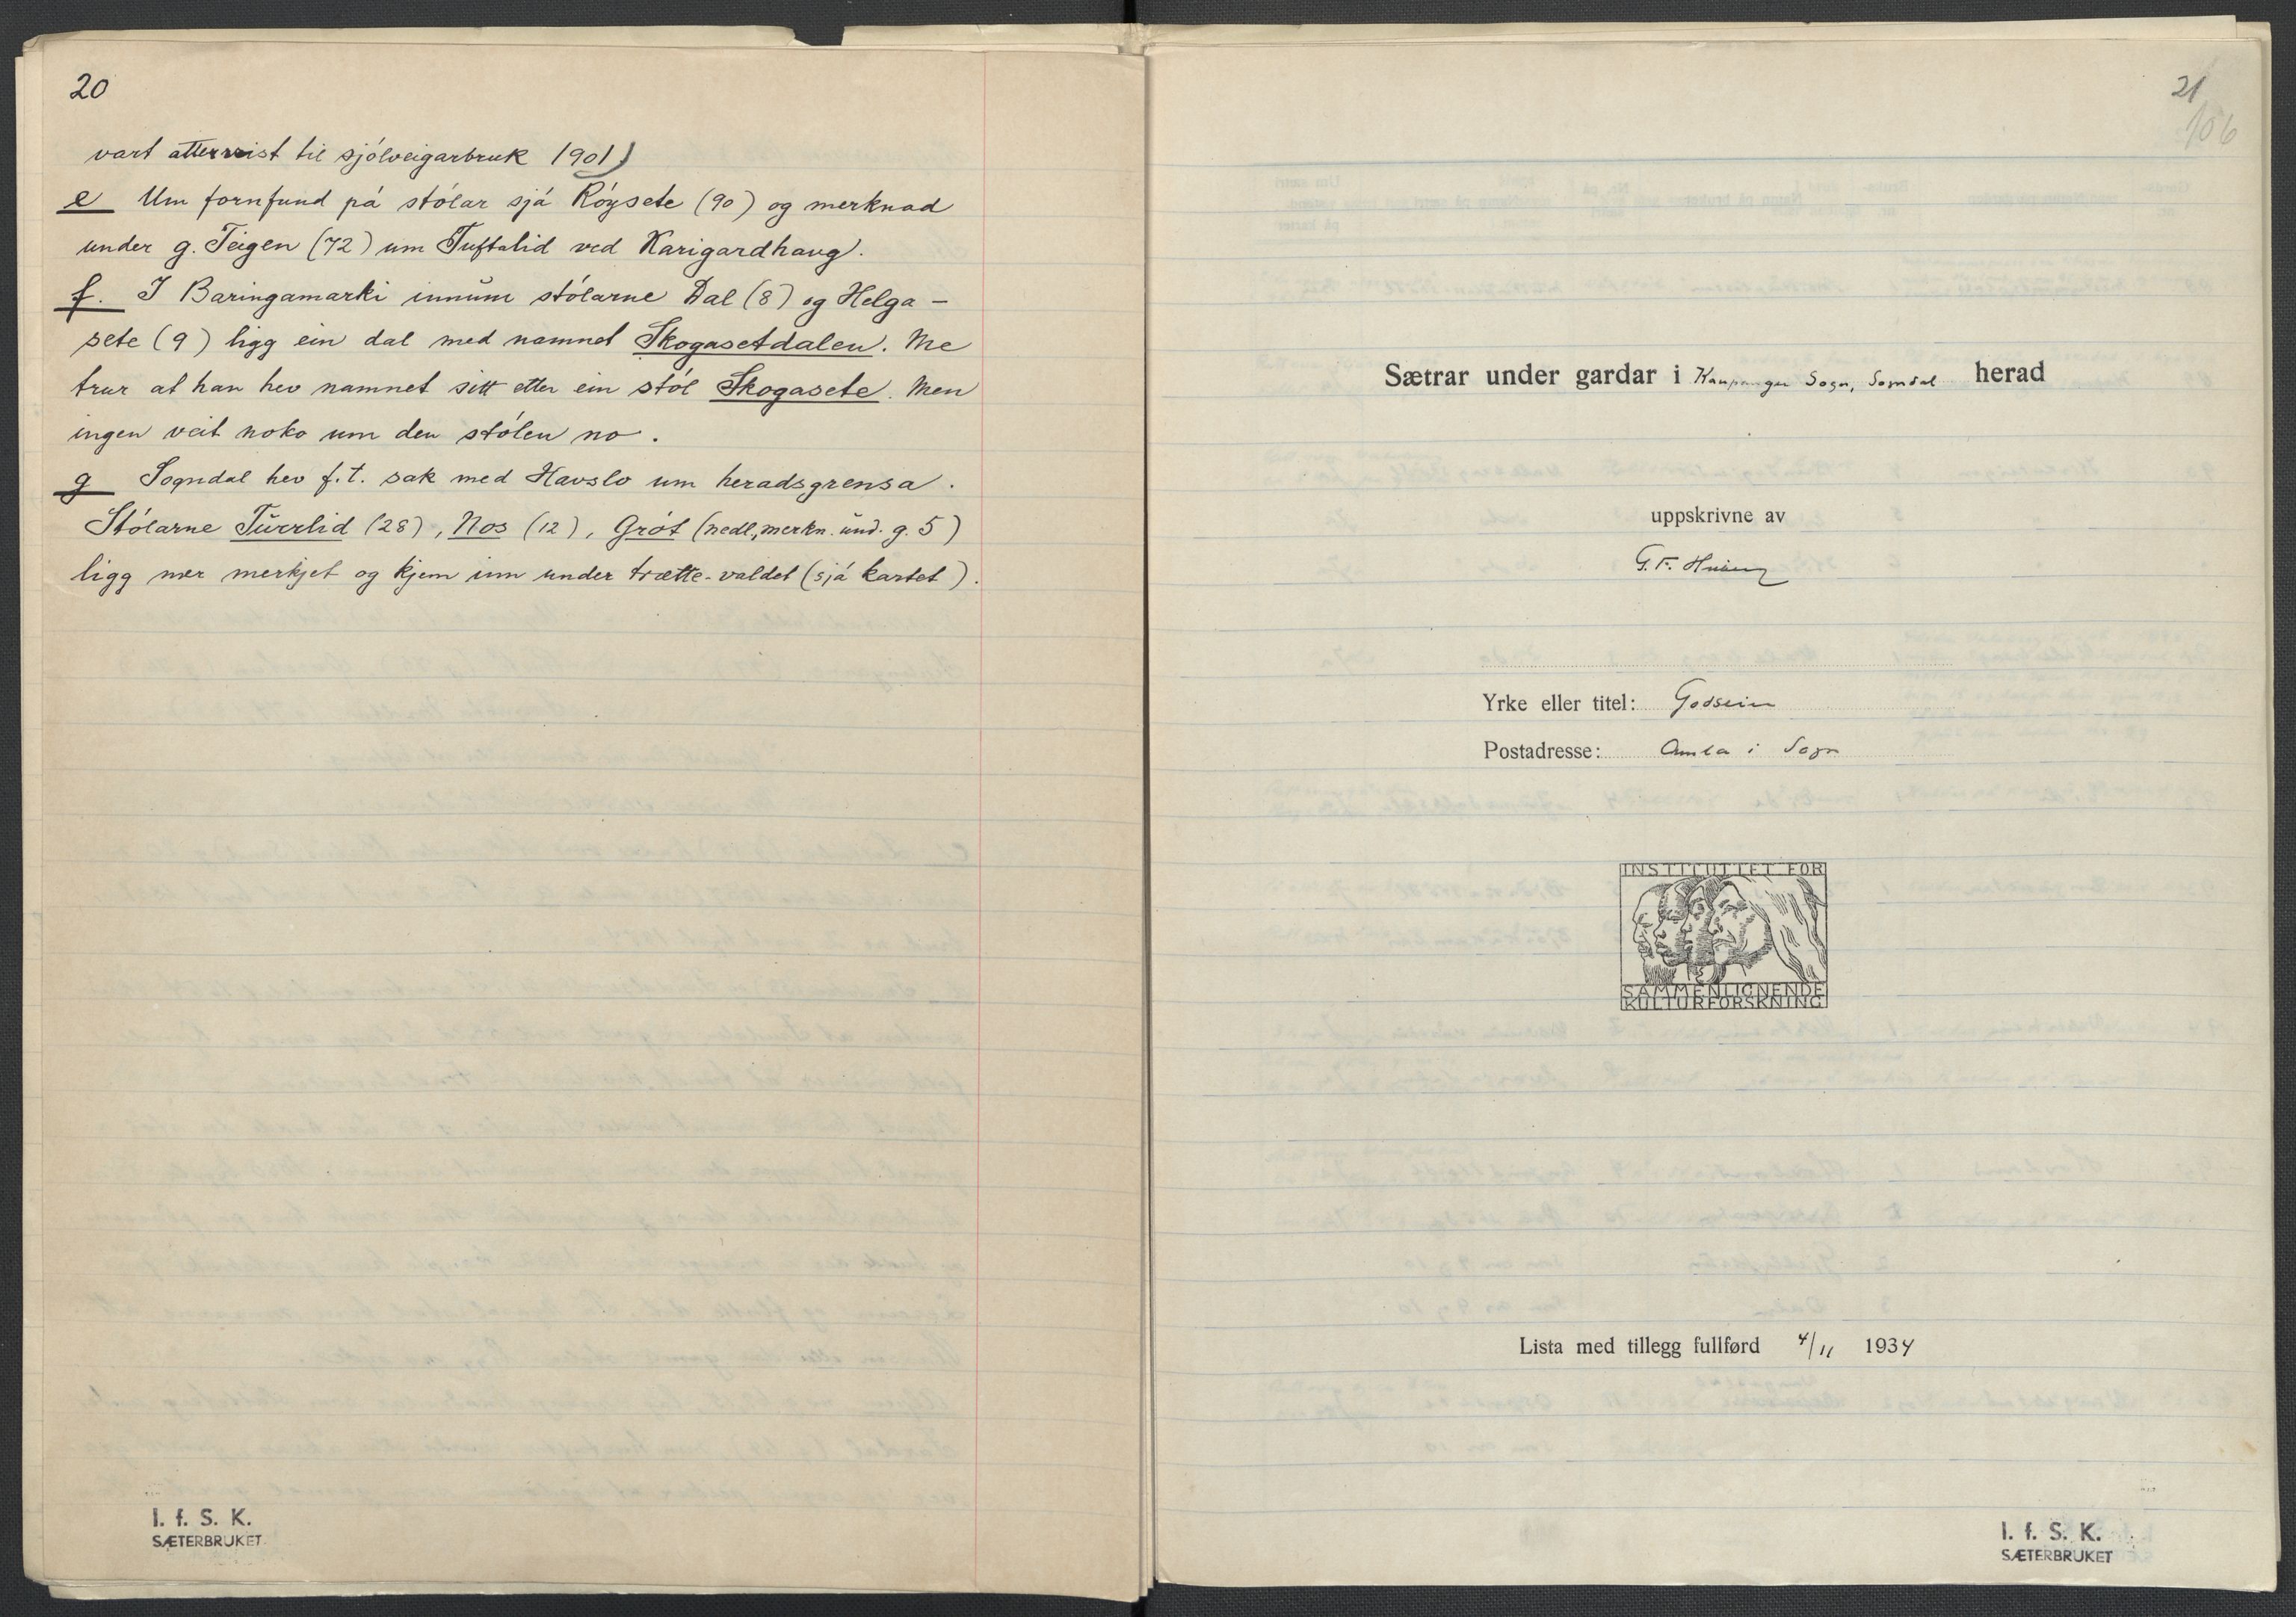 20
vart atterreist til sjólveigarbruk 1901)
e Um fornfund pá stólar sjá Róysete (90) og merknad
under g. Teigen (72) um Tuftalid ved Karigardhaug.
f. I Baringamarki innum stólarne Dal (8) og Helga-
sete (9) ligg ein dal med namnet Skogasetdalen. Me
trur at han hev namnet sitt etter ein stól Skogasete. Men
ingen veit noko um den stólen no.
g Sogndal hev f.t. sak med Havslo um heradsgrensa.
Stólarne Turrlid (28), Nos (12), Grót (nedl., merkn. und. g. 5)
ligg nær merkjet og kjem inn under trætte-valdet (sjá kartet).
I. f. S. K.
SÆTERBRUKET
21
106
Sætrar under gardar i Kaupanger Sogn, Sogndal herad
uppskrivne av
G. F. Heiberg
Yrke eller titel: Godseier
Postadresse: Amla i Sogn
INSTITUTTET FOR
SAMMENLIGNENDE
KULTURFORSKNING
Lista med tillegg fullførd 4/11 1934
I. f. S. K.
SÆTERBRUKET